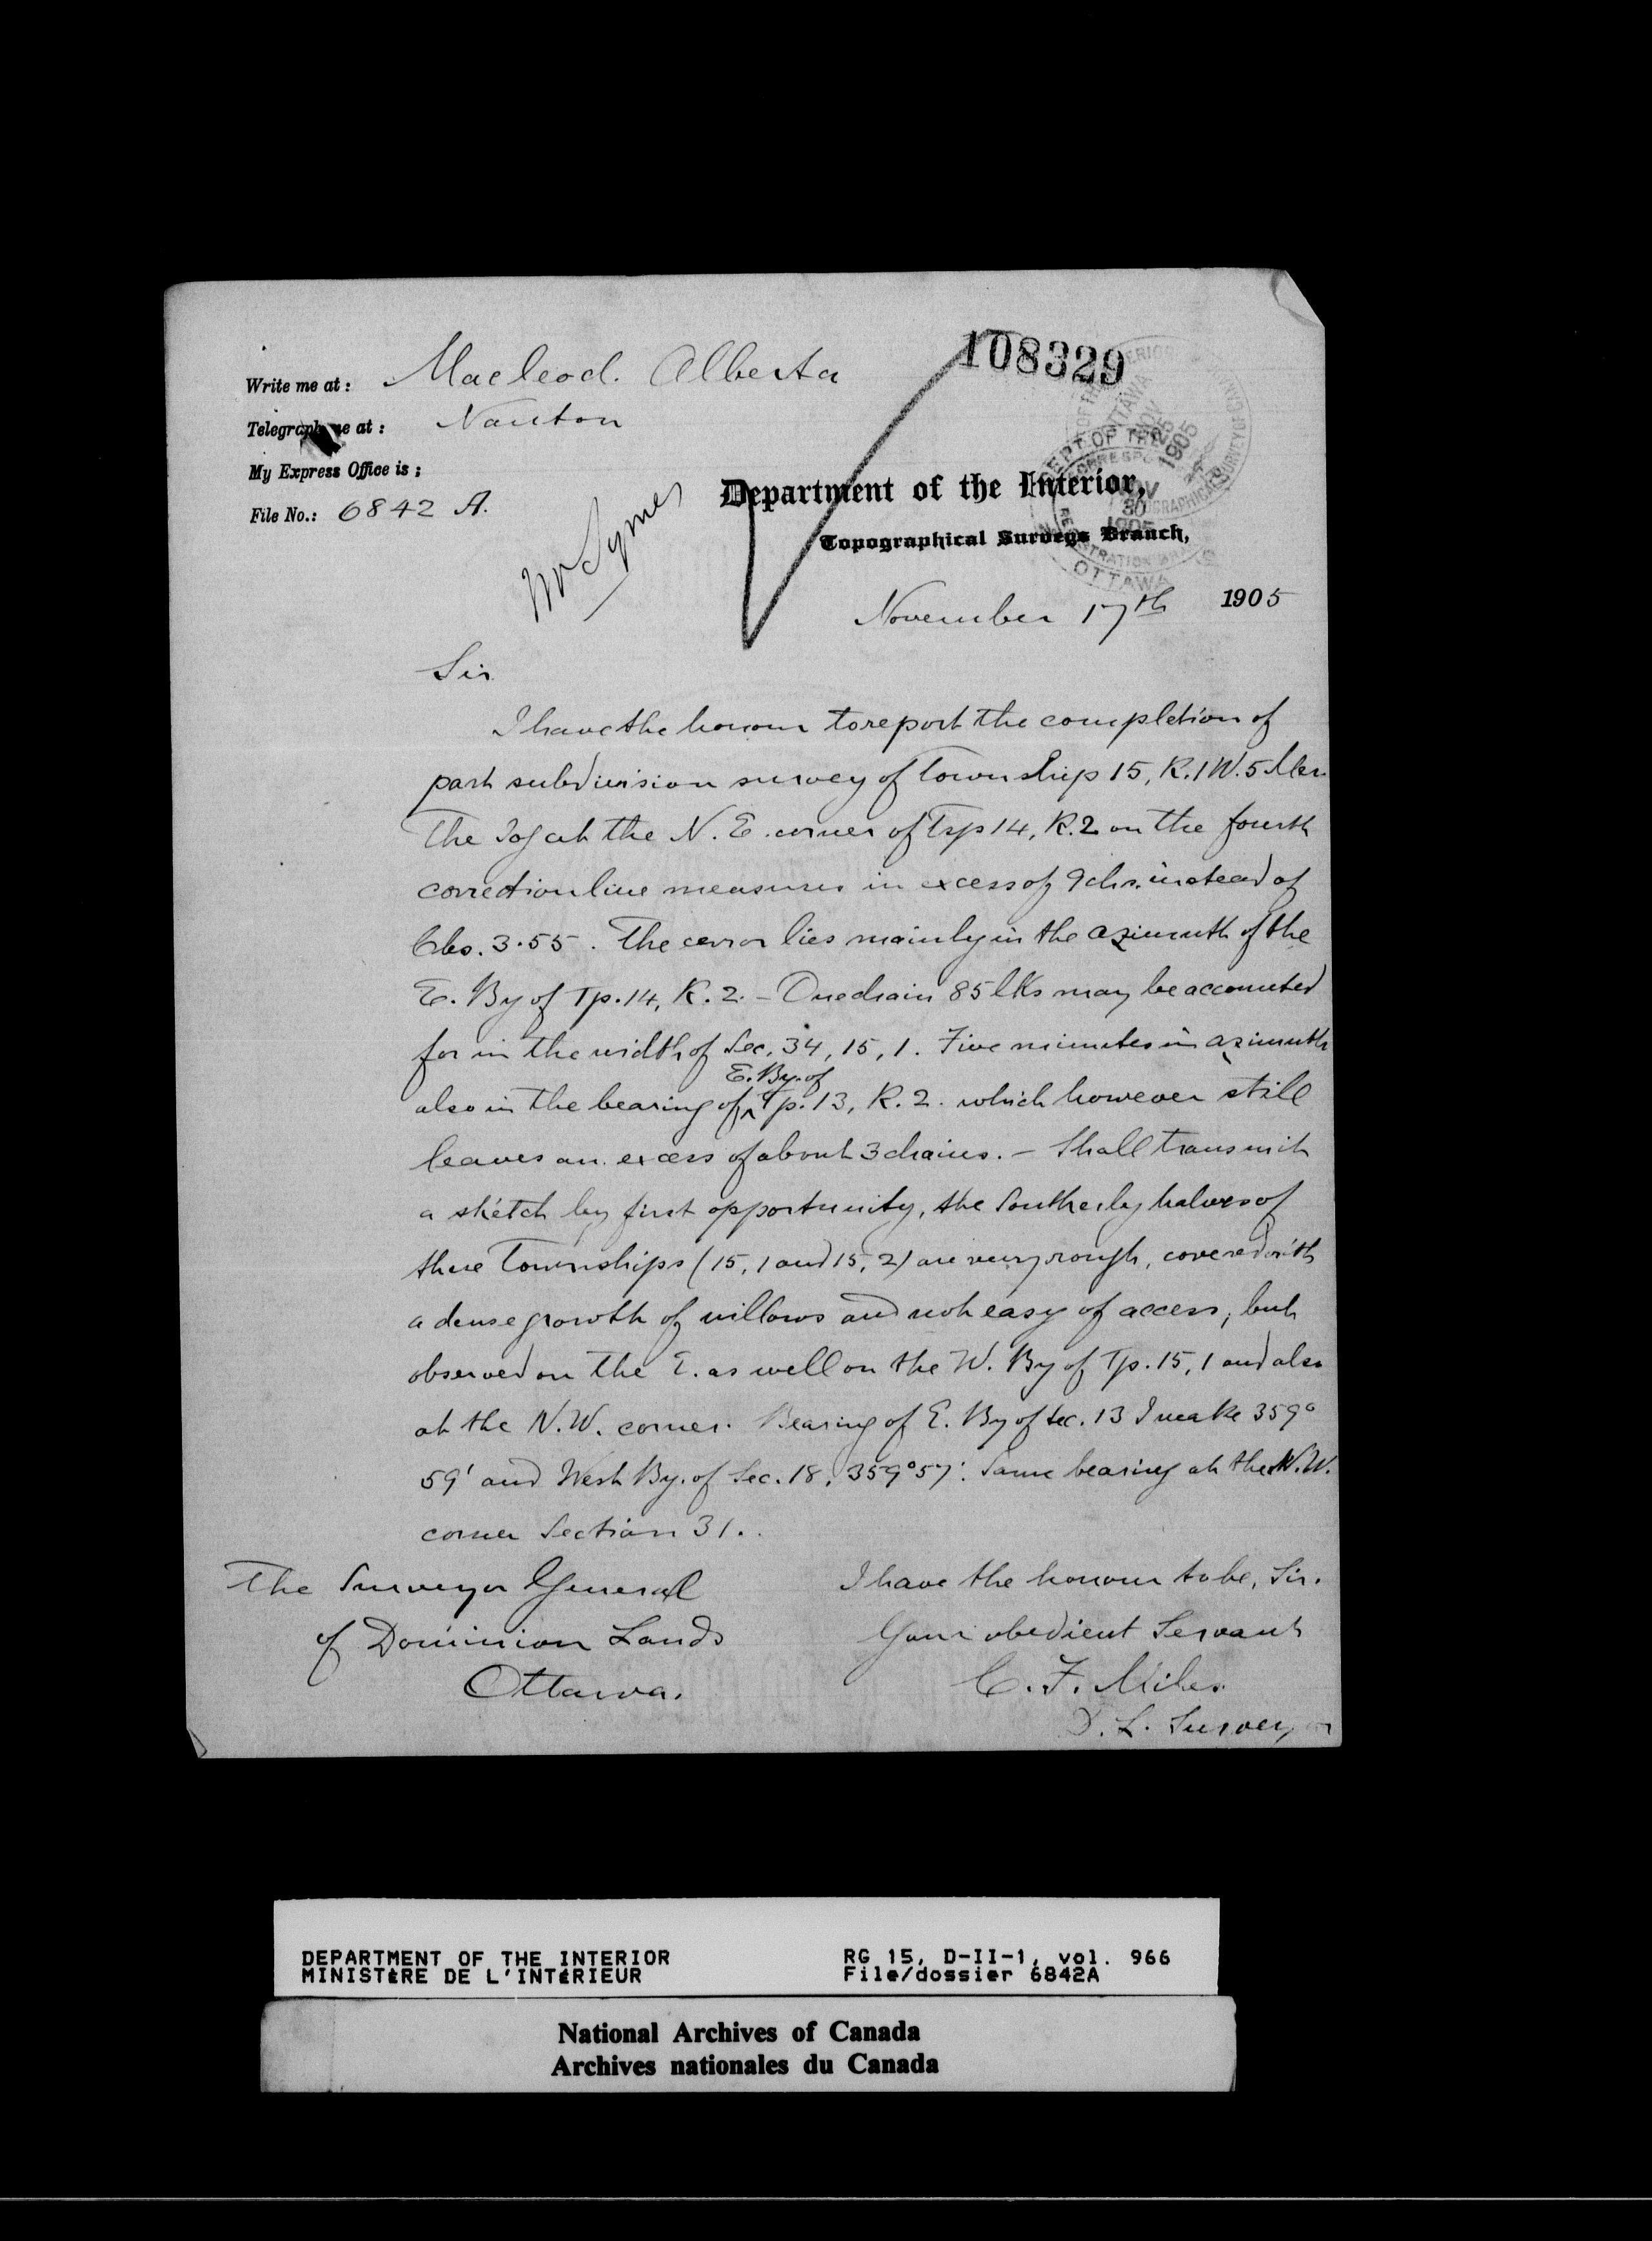 108329
Write me at: Macleod. Alberta
Telegraph me at: Nanton
My Express Office is:
File No.: 6842 A.
Mr Symes
Department of the Interior,
Topographical Surveys Branch,
DEPT OF THE
NOV 30 1905
REGISTRATION BRANCH
OTTAWA
OTTAWA NOV 1905
November 17th 1905
Sir
I have the honour to report the completion of
part subdivision survey of Township 15, R.1 W. 5 Mer.
The Jog at the N. E. corner of Tsp 14, R.2 on the fourth
correction line measures in excess of 9 chs. instead of
Chs. 3.55. The error lies mainly in the azimuth of the
E. By of Tp. 14, R. 2. – One chain 85 lks may be accounted
for in the width of Sec. 34, 15, 1. Five minutes in azimuth
also in the bearing of E. By. of Tp. 13, R. 2. which however still
leaves an excess of about 3 chains. – Shall transmit
a sketch by first opportunity, the Southerly halves of
these Townships (15, 1 and 15, 2) are very rough, covered with
a dense growth of willows and not easy of access; but
observed on the E. as well on the W. By of Tp. 15, 1 and also
at the N.W. corner. Bearing of E. By of Sec. 13 I make 359°
59' and West By. of Sec. 18, 359°57'. Same bearing at the N.W.
corner Section 31.
The Surveyor General
of Dominion Lands
Ottawa.
I have the honour to be, Sir.
Your obedient Servant
C. F. Miles.
D. L. Surveyor
DEPARTMENT OF THE INTERIOR
MINISTÈRE DE L'INTÉRIEUR
RG 15, D-II-1, vol. 966
File/dossier 6842A
National Archives of Canada
Archives nationales du Canada